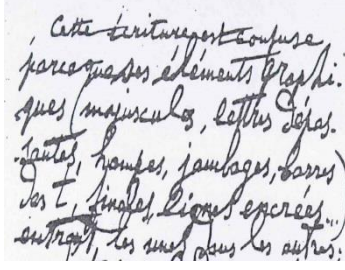 Cette écriture est confuse
parce que ses éléments graphi-
ques (majuscules, lettres dépas-
santes, hampes, jambages, barres
des t, finales, lignes encrées...)
entrent, les unes dans les autres.